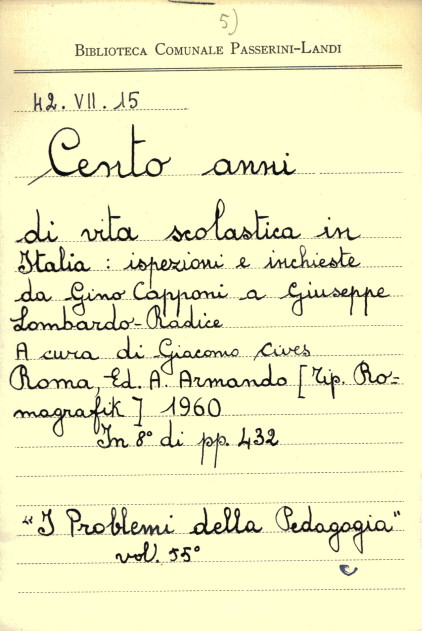 5)
BIBLIOTECA COMUNALE PASSERINI-LANDI
42. VII. 15
Cento anni
di vita scolastica in
Italia : ispezioni e inchieste
da Gino Capponi a Giuseppe
Lombardo-Radice
A cura di Giacomo Cives
Roma, Ed. A. Armando [Tip. Ro=
magrafik] 1960
In 8° di pp. 432
"I Problemi della Pedagogia"
vol. 55°
c